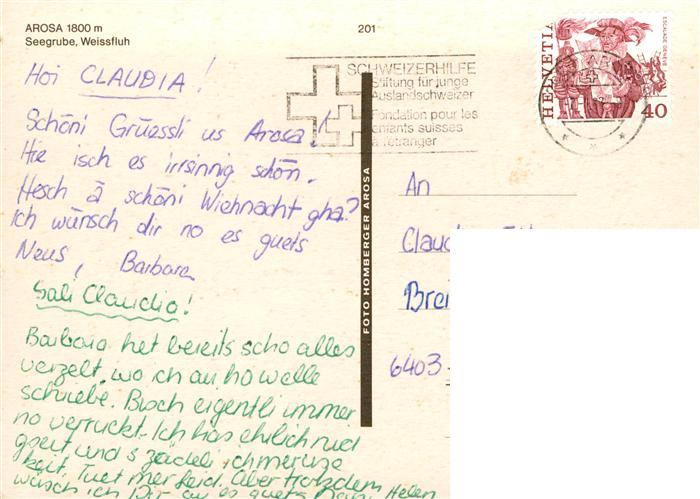 AROSA 1800 m
Seegrube, Weissfluh
201
SCHWEIZERHILFE
Stiftung für junge
Auslandschweizer
Fondation pour les
enfants suisses
à l'étranger
HELVETIA
ESCALADE GENÈVE
40
Hoi CLAUDIA!
Schöni Grüessli us Arosa!
Hie isch es irrsinnig schön.
Hesch ä schöni Wiehnacht gha?
Ich wünsch dir no es guets
Neus, Barbara
Sali Claudia!
Barbara het bereits scho alles
verzelt, wo ich au ho welle
schriebe. Bisch eigentli immer
no verruckt. Ich has ehrlich nid
gseit und s
Tuet mer leid. Aber trotzdem
wüsch ich Dir es guets Helen
FOTO HOMBERGER AROSA
An
6403